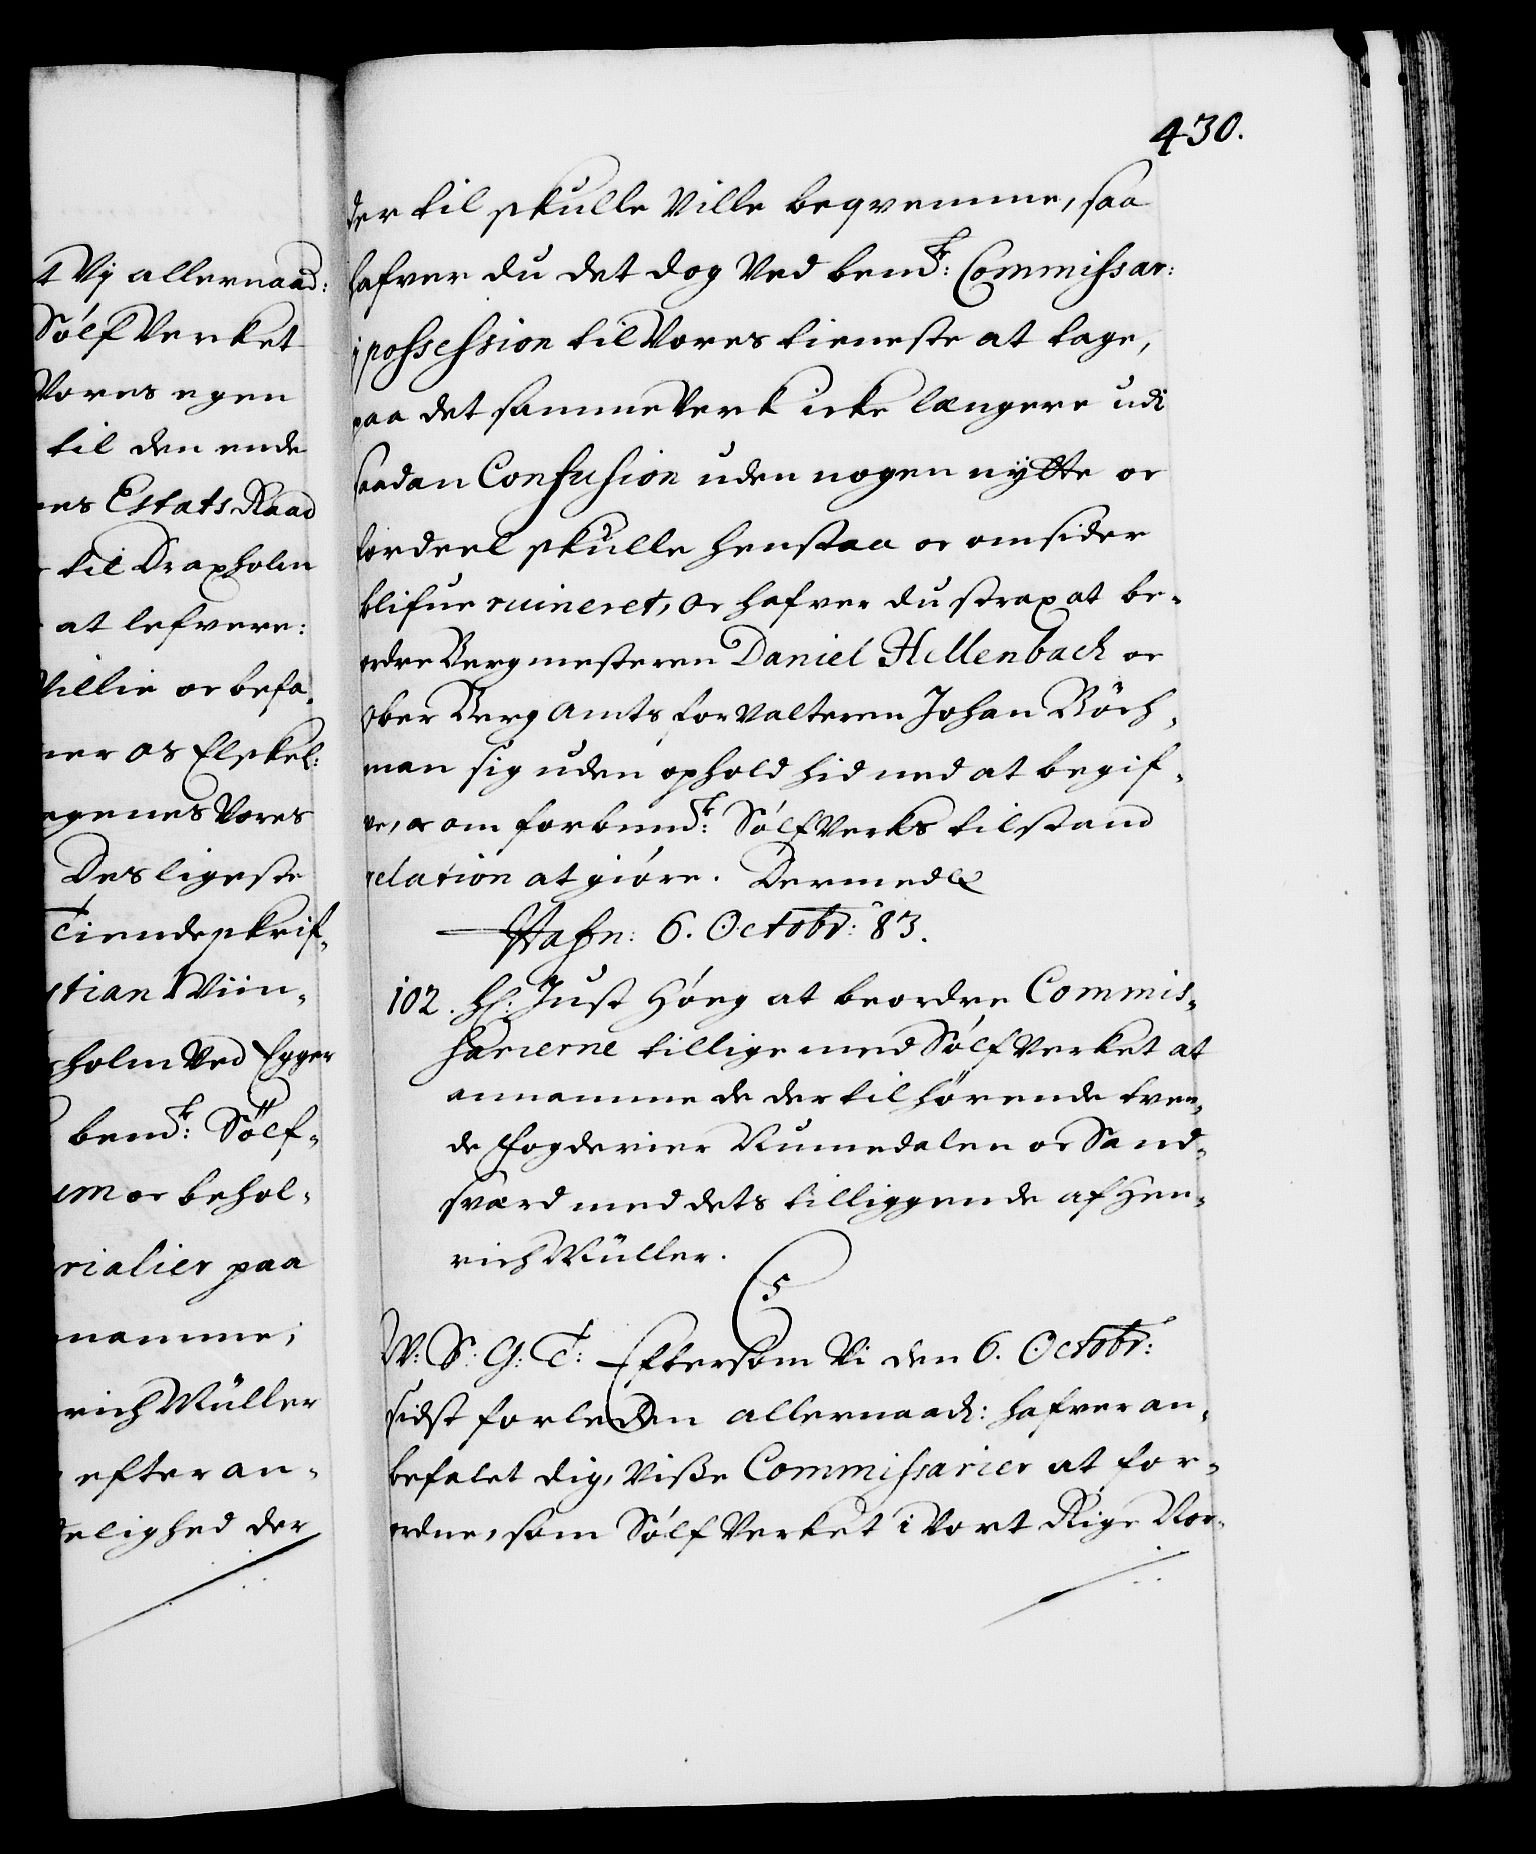 t Vj allernaad:
SølfVerket
Vores egen
til den ende
Estats Raad
til Draxholm
at lefvere:
Villie oc befa-
os Elskel:
Vores
Desligeste
Tiendeskrif-
Wiin-
holm Ved Egger
bemt: Sølf-
oc behol-
paa
namme;
rich Müller
efter an-
der
430.
der til skulle Ville beqvemme, saa
hafver du det dog Ved bemt: Commissar:
i possession til Vores tieneste at tage,
paa det samme Verk icke længere udi
saadan Confusion uden nogen nytte oc
fordeel skulle henstaa oc omsider
blifve ruineret, oc hafver du strax at be-
ordre Bergmesteren Daniel Hellenbach oc
Ober BergAmtsforValteren Johan Böch-
man sig uden ophold hid ned at begif-
ve, oc om forbemt: SølfVerks tilstand
relation at giøre. Dermed &
Hafn: 6. Octobr: 83.
102. H: Just Høeg at beordre Commis-
sarierne tillige med SølfVerket at
annamme de der til hørende tven-
de Fogderier Numedalen oc Sand-
sværd med dets tilliggende af Hen-
rich Müller.
C5
W: S: G: T: Eftersom Vi den 6. Octobr:
sidst forleden allernaadt: hafver an-
befalet dig, Visse Commissarier at for-
ordne, som SølfVerket i Vort Rige Nor-